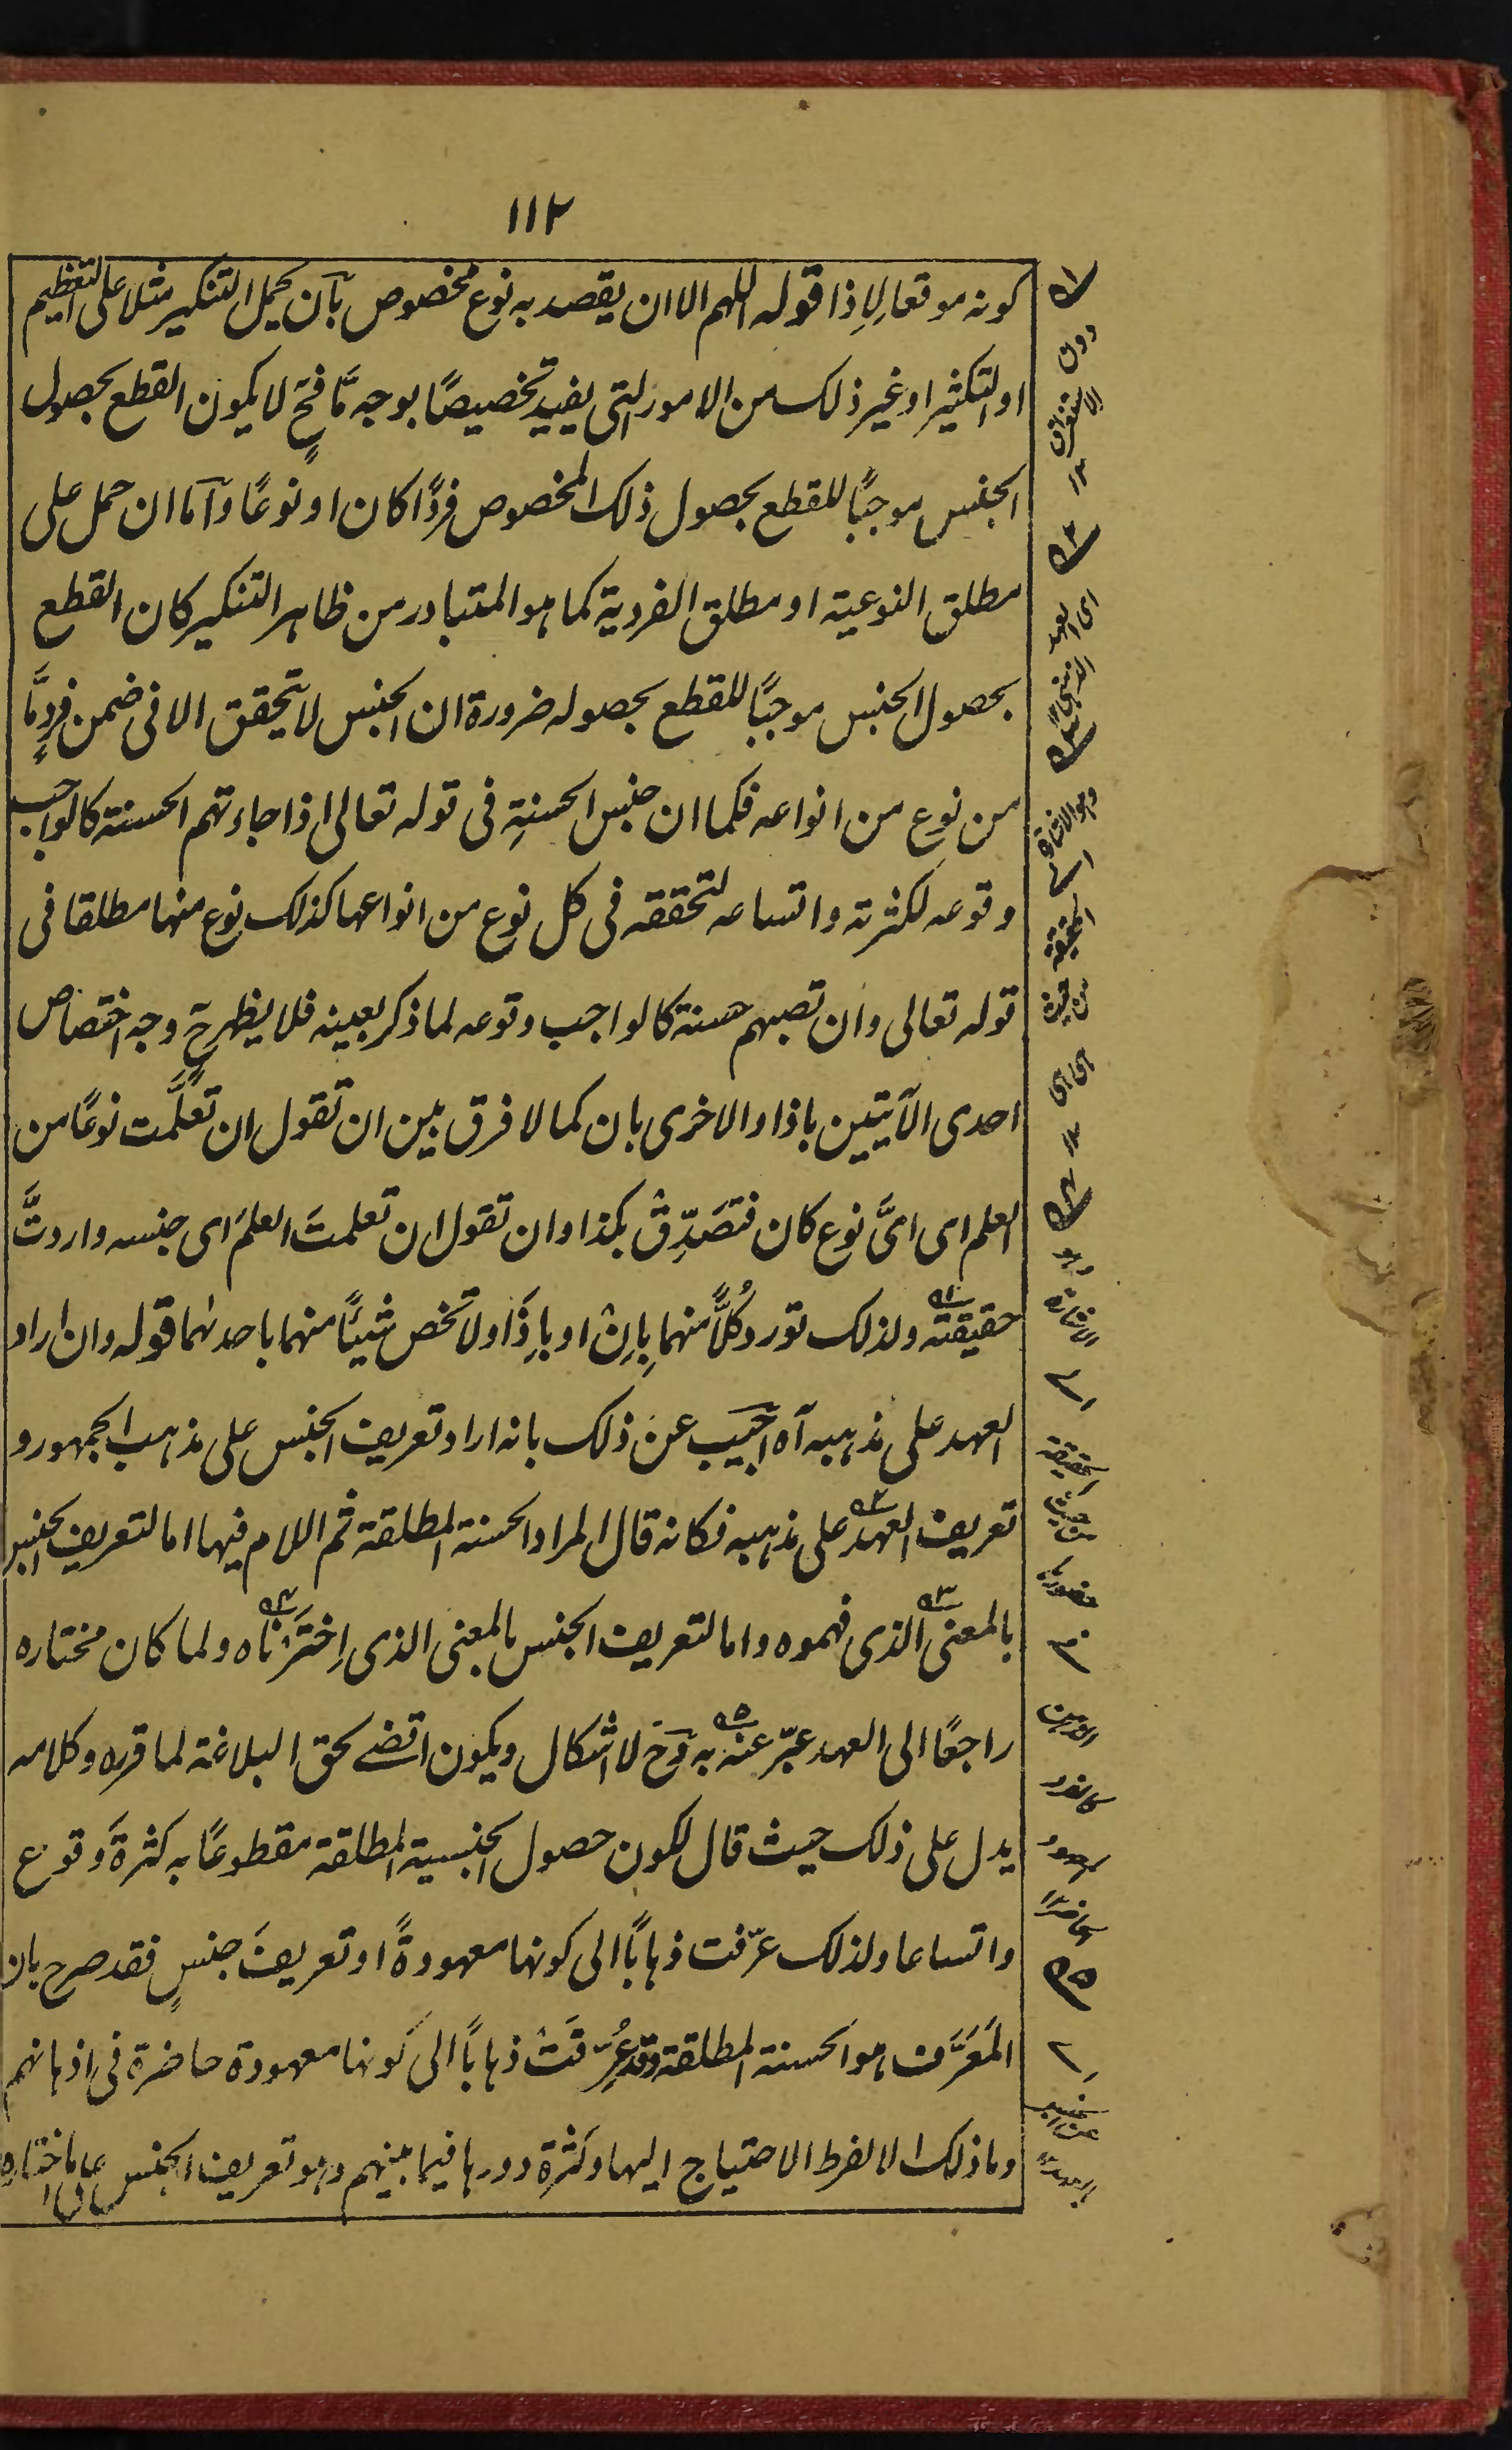 ١١٢
كونه موقعا لإذا قوله اللهم الا ان يقصد به نوع مخصوص بآن يحمل التنكير مثلا على التعظيم
او التكثير او غير ذلك من الامور التى يفيد تخصيصًا بوجه مَّا فحٍ لا يكون القطع بحصول
الجنس موجبًا للقطع بحصول ذلك المخصوص فردًا كان او نوعًا وآما ان حمل على
مطلق النوعية او مطلق الفردية كما هو المتبادر من ظاهر التنكير كان القطع
بحصول الجنس موجبًا للقطع بحصوله ضرورة ان الجنس لا يتحقق الا فى ضمن فردٍ مَّا
من نوع من انواعه فكما ان جنس الحسنةِ فى قوله تعالى اذا جاءتهم الحسنة كالواجب
وقوعه لكثرته واتساعه لتحققه فى كل نوع من انواعها كذلك نوع منها مطلقا فى
قوله تعالى وان تصبهم حسنة كالواجب وقوعه لما ذكر بعينه فلا يظهر حٍ وجه اختصاص
احدى الآيتين باذا والاخرى بان كما لا فرق بين ان تقول ان تعلَّمت نوعًا من
العلم اى اىَّ نوع كان فتصَدِّق بكذا وان تقول ان تعلمتَ العلمَ اى جنسه واردتَّ
حقيقته ولذلك تورد كُلًّا منهما بِاِنْ او باِذَا ولا تخص شيئًا منهما باحدٰهما قوله وان اراد
العهد على مذهبه آه اجيَب عن ذلك بانه اراد تعريف الجنس على مذهب الجمهور و
تعريف العهد على مذهبه فكانه قال المراد الحسنة المطلقة ثم اللام فيها اما لتعريف الجنس
بالمعنى الذى فهموه واما لتعريف الجنس بالمعنى الذى اِختَرْناه ولما كان مختاره
راجعًا الى العهد عبّر عنه به وحٍ لا اشكال ويكون اقضے لحق البلاغة لما قرره وكلامه
يدل على ذلك حيث قال لكون حصول الجنسية المطلقة مقطوعًا به كثرةَ وقوع
واتساعا ولذلك عرّفت ذهابًا الى كونها معهودةً او تعريفَ جنسٍ فقد صرح بان
المَعَرَّف هو الحسنة المطلقة وقد عُرِّفَتْ ذهابًا الى كونها معهودة حاضرة فى اذهانهم
وما ذلك الا لفرط الاحتياج اليها وكثرة دورها فيما بينهم وهو تعريف الجنس على ما اختاره
دون
الاستغراق
١٢
اى العهد
الذهنى ١٢